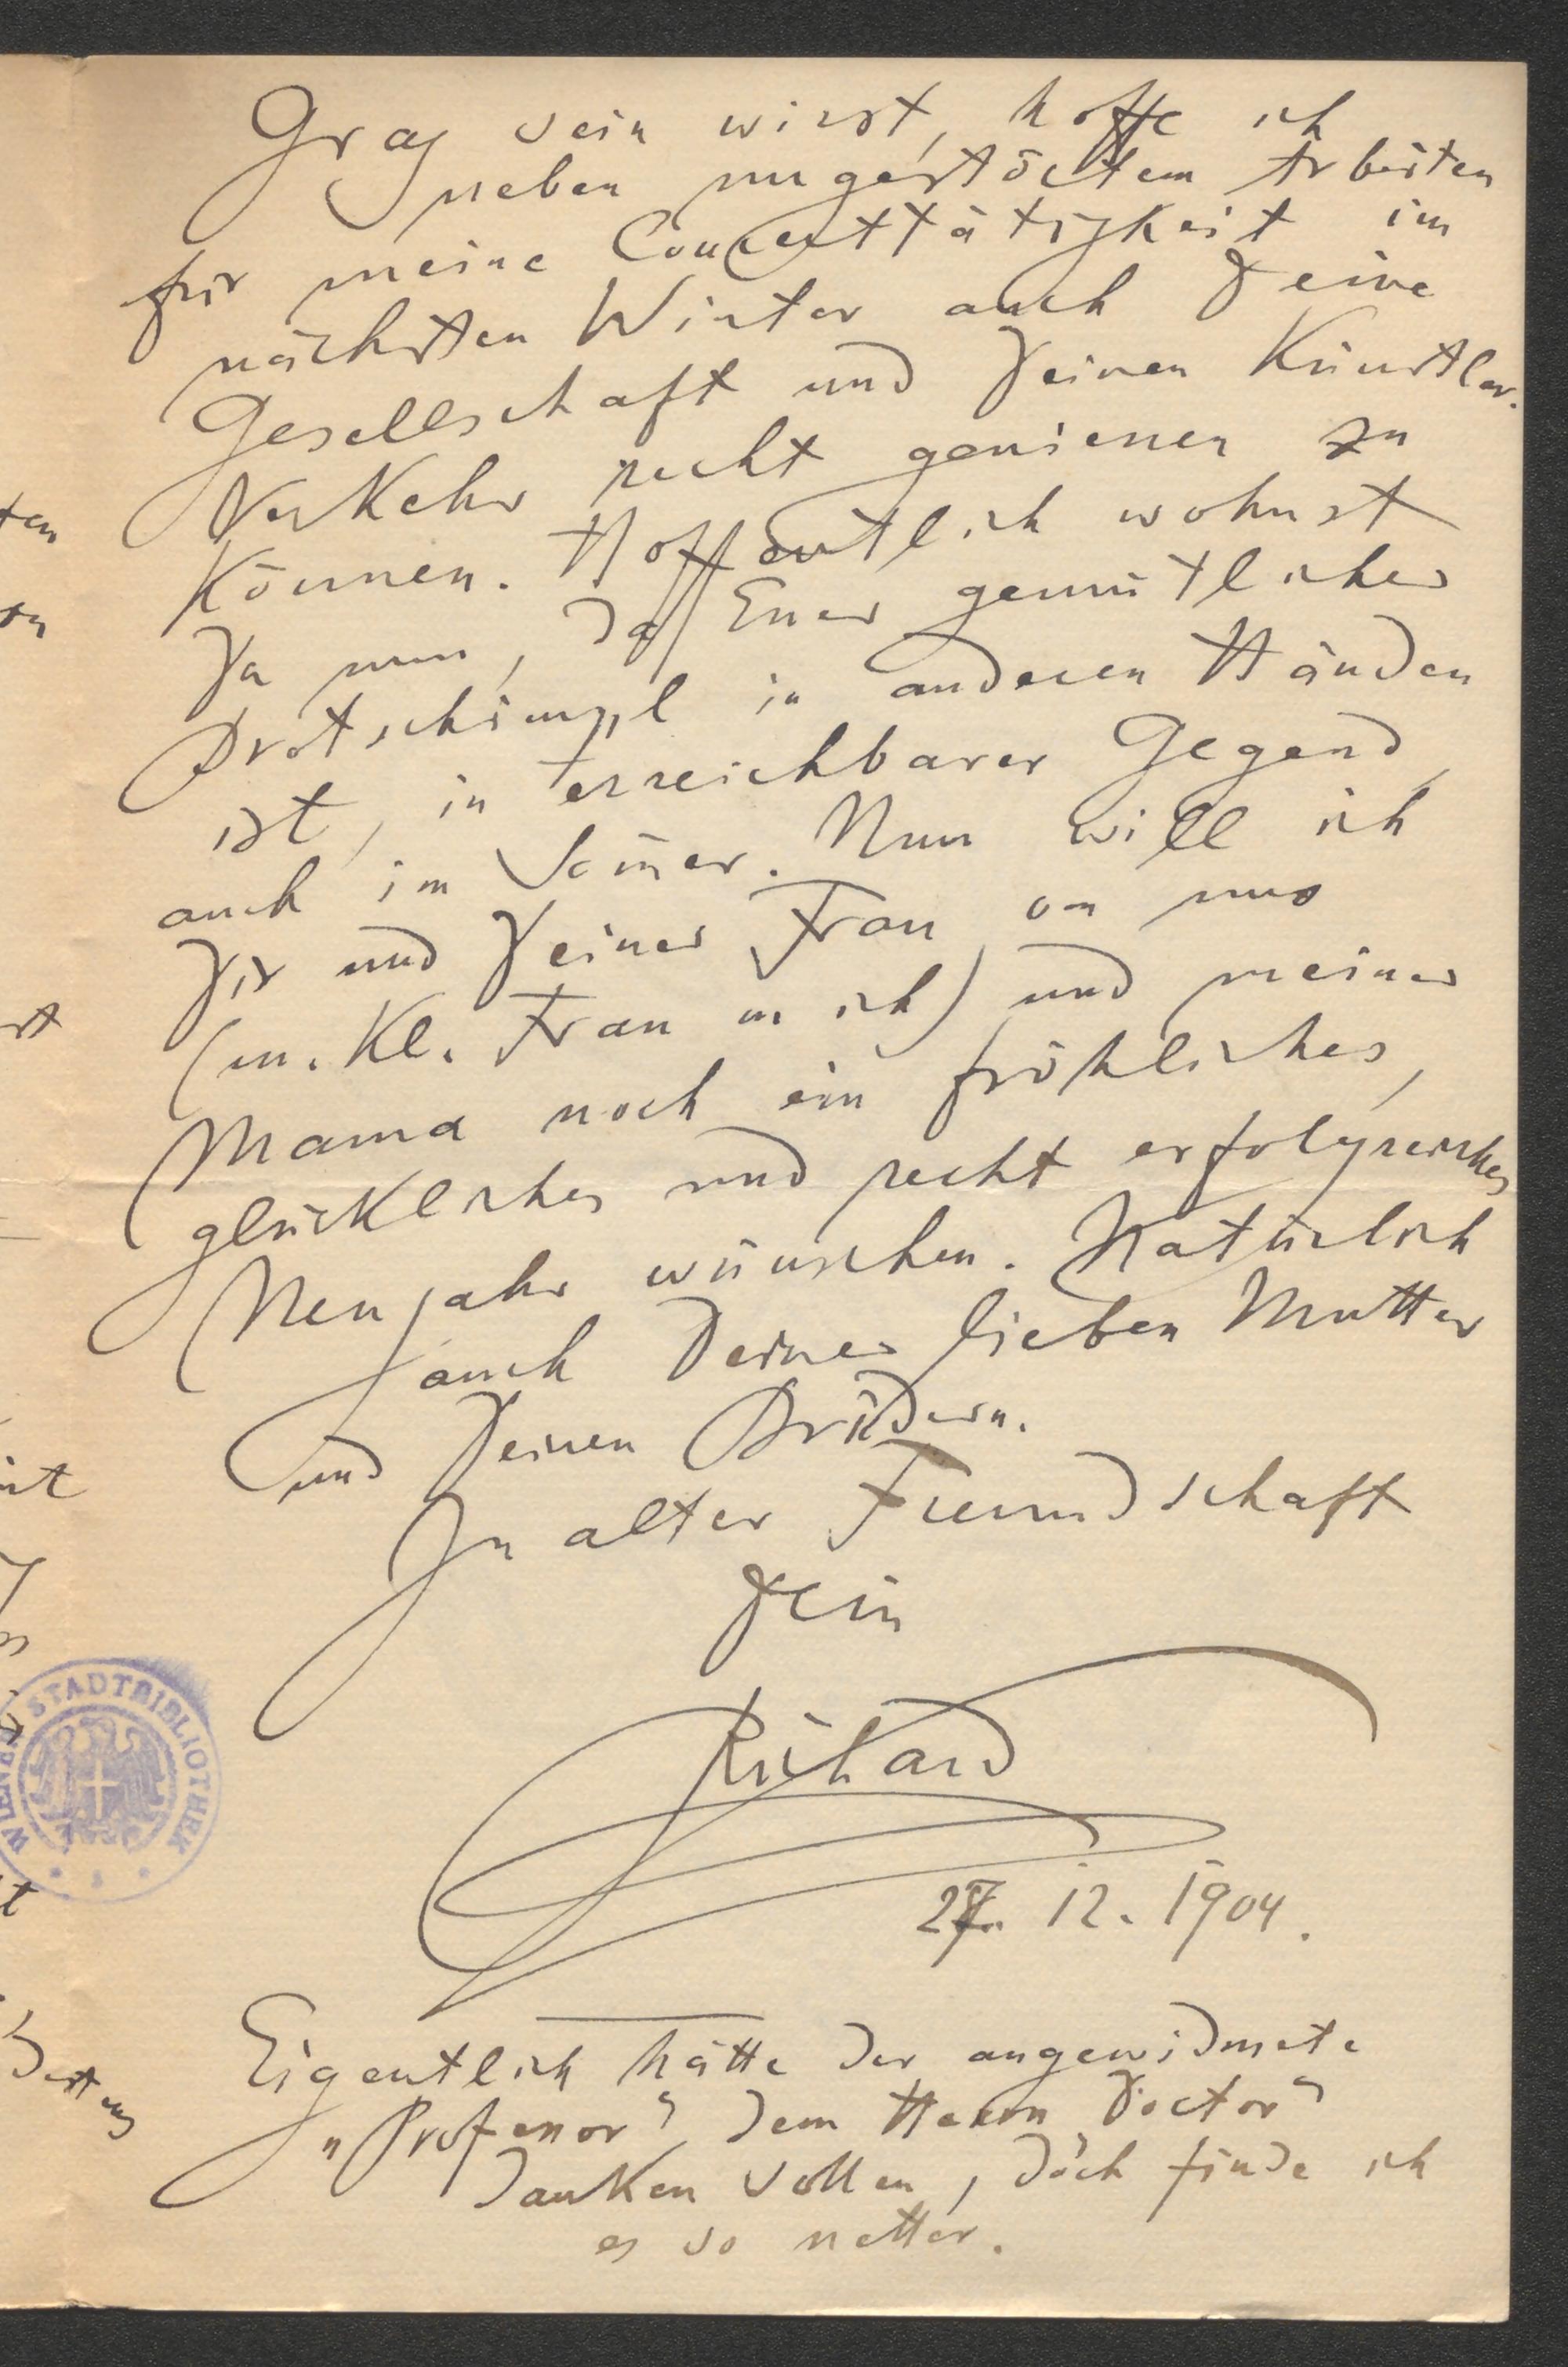 Graz sein wirst, hoffe ich
neben ungestörtem Arbeiten
für meine Concerttätigkeit im
nächsten Winter auch Deine
Gesellschaft und Deinen Künstler-
Verkehr recht geniessen zu
können. Hoffentlich wohnst
Du nun, da Euer gemütlicher
in anderen Händen
ist, in erreichbarer Gegend,
auch im Som̄er. Nun will ich
Dir und Deiner Frau von uns
(m. Kl. Frau u ich) und meiner
Mama noch ein fröhliches,
glückliches und recht erfolgreiches
Neujahr wünschen. Natürlich
auch Deiner lieben Mutter
und Deinen Brüdern.
In alter Freundschaft
Dein
Richard
27. 12. 1904.
Eigentlich hätte der angewidmete
„Professor“ dem Herrn Doctor“
danken sollen, doch finde ich
es so netter.
WIENER STADTBIBLIOTHEK